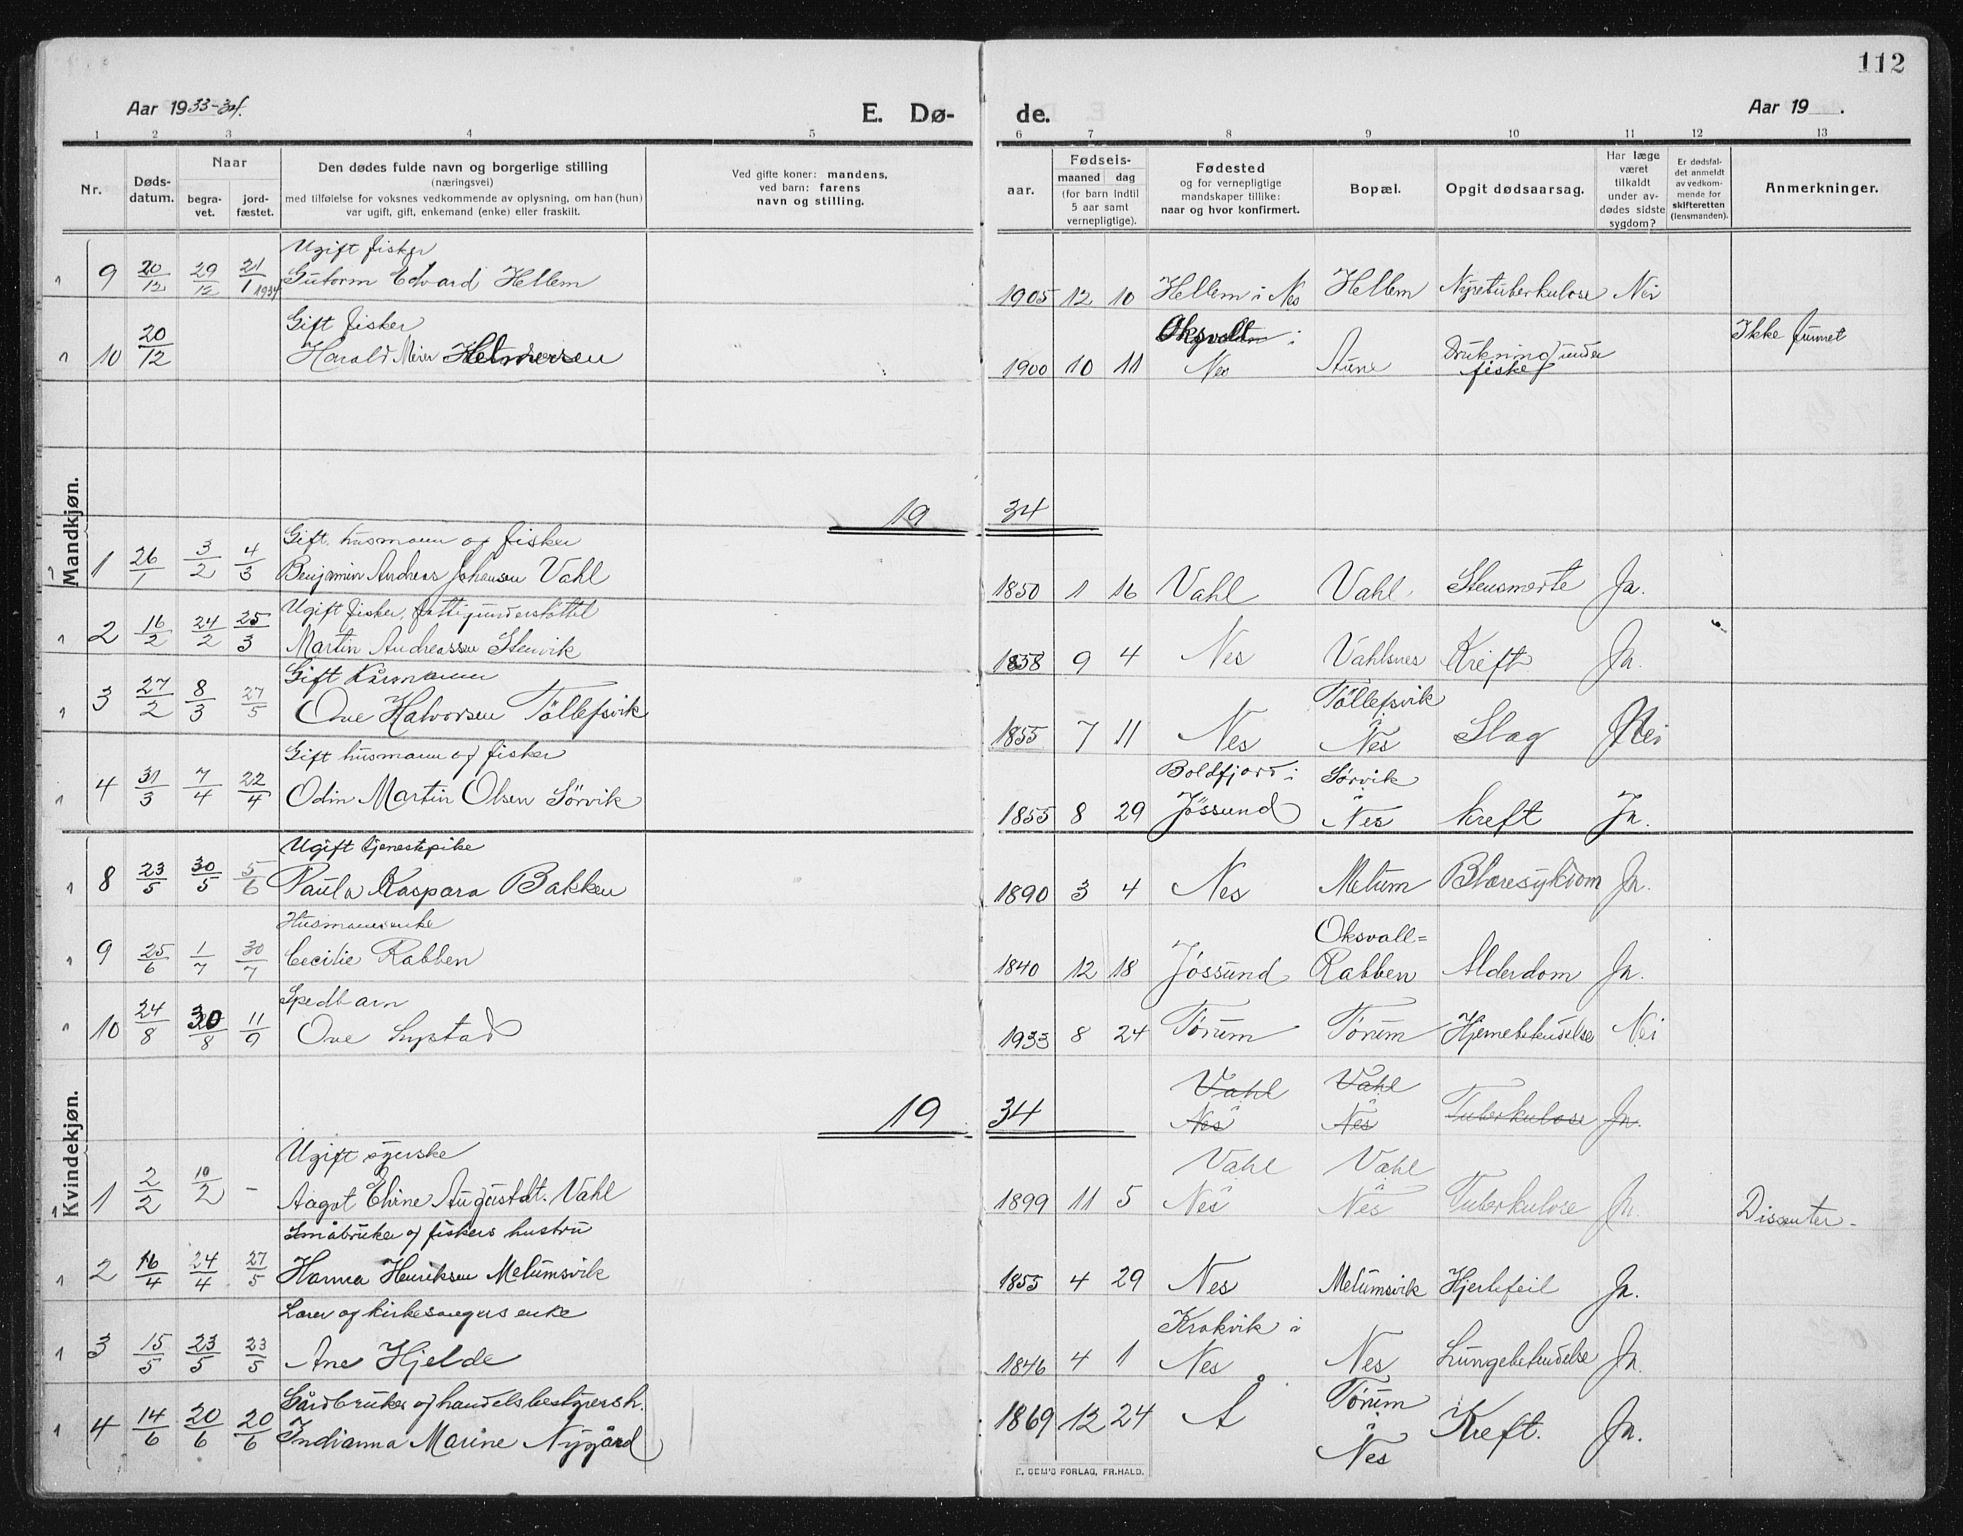 112
Aar 1933-34.
E. Dø-
de.
Aar 19 .
1 2 3 4 5 6 7 8 9 10 11 12 13
Nr.
Døds-
datum.
Naar
begra-
vet.
jord-
fæstet.
Den dødes fulde navn og borgerlige stilling
(næringsvei)
med tilføielse for voksnes vedkommende av oplysning, om han (hun)
var ugift, gift, enkemand (enke) eller fraskilt.
Ved gifte koner: mandens,
ved barn: farens
navn og stilling.
aar.
Fødsels-
maaned dag
(for barn indtil
5 aar samt
vernepligtige).
Fødested
og for vernepligtige
mandskaper tillike:
naar og hvor konfirmert.
Bopæl.
Opgit dødsaarsag.
Har læge
været
tilkaldt
under av-
dødes sidste
sygdom?
Er dødsfal-
det anmeldt
av vedkom-
mende for
skifteretten
(lensmanden).
Anmerkninger.
Mandkjøn.
Ugift fisker
9 20/12 29/12 21/1 1934 Gutorm Edvard Hellem 1905 12 10 Hellem i Nes Hellem Nyretuberkulose Nei
Gift fisker Oksvoll i Drukning under Ikke funnet
10 20/12 Harald Meier Helmersen 1900 10 11 Nes Aune fiske
1934
Gift. husmann og fisker
1 26/1 3/2 4/3 Benjamin Andreas Johansen Vahl 1850 1 16 Vahl Vahl. Stensmerte Ja.
Ugift fisker, fattigunderstöttet
2 16/2 24/2 25/3 Martin Andreassen Stenvik 1858 9 4 Nes Vahlsnes Kreft Ja.
Gift Kårmann Töllefsvik
3 27/2 8/3 27/5 Ove Halvorsen Töllefsvik 1855 7 11 Nes i Nes Slag Nei
Gift husmann og fisker Boldfjord i Sörvik
4 31/3 7/4 22/4 Odin Martin Olsen Sörvik 1855 8 29 Jössund i Nes kreft Ja.
Kvindekjøn.
Ugift tjenestepike
8 23/5 30/5 5/6 Paula Kaspara Bakken 1890 3 4 Nes Melum Blæresykdom Ja.
Husmannsenke Oksvall=
9 25/6 1/7 30/7 Cecilie Rabben 1840 12 18 Jössund Rabben Alderdom Ja.
Spedbarn
10 24/8 30/8 11/9 Ove Lystad 1933 8 24 Tørum Tørum Hjernebetendelse Nei
Vahl Vahl
1934 i Nes i Nes Tuberkulose Ja.
Ugift syerske Vahl Vahl
1 2/2 10/2 - Aagot Eline Augusta t. Vahl 1899 11 5 i Nes i Nes Tuberkulose Ja. Dissenter -
Småbruker og fiskers hustru
2 16/4 24/4 27/5 Hanna Henriksen Melumsvik 1855 4 29 Nes Melumsvik Hjertefeil Ja.
Lærer og kirkesangers enke Krokvik i
3 15/5 23/5 23/5 Ane Hjelde 1846 4 1 Nes Nes Lungebetendelse Ja.
Gårdbruker og handelsbestyrersh. Tørum
4 14/6 20/6 20/6 Indianna Marine Nygård 1869 12 24 Å i Nes Kreft. Ja.
E. SEM'S FORLAG, FR.HALD.